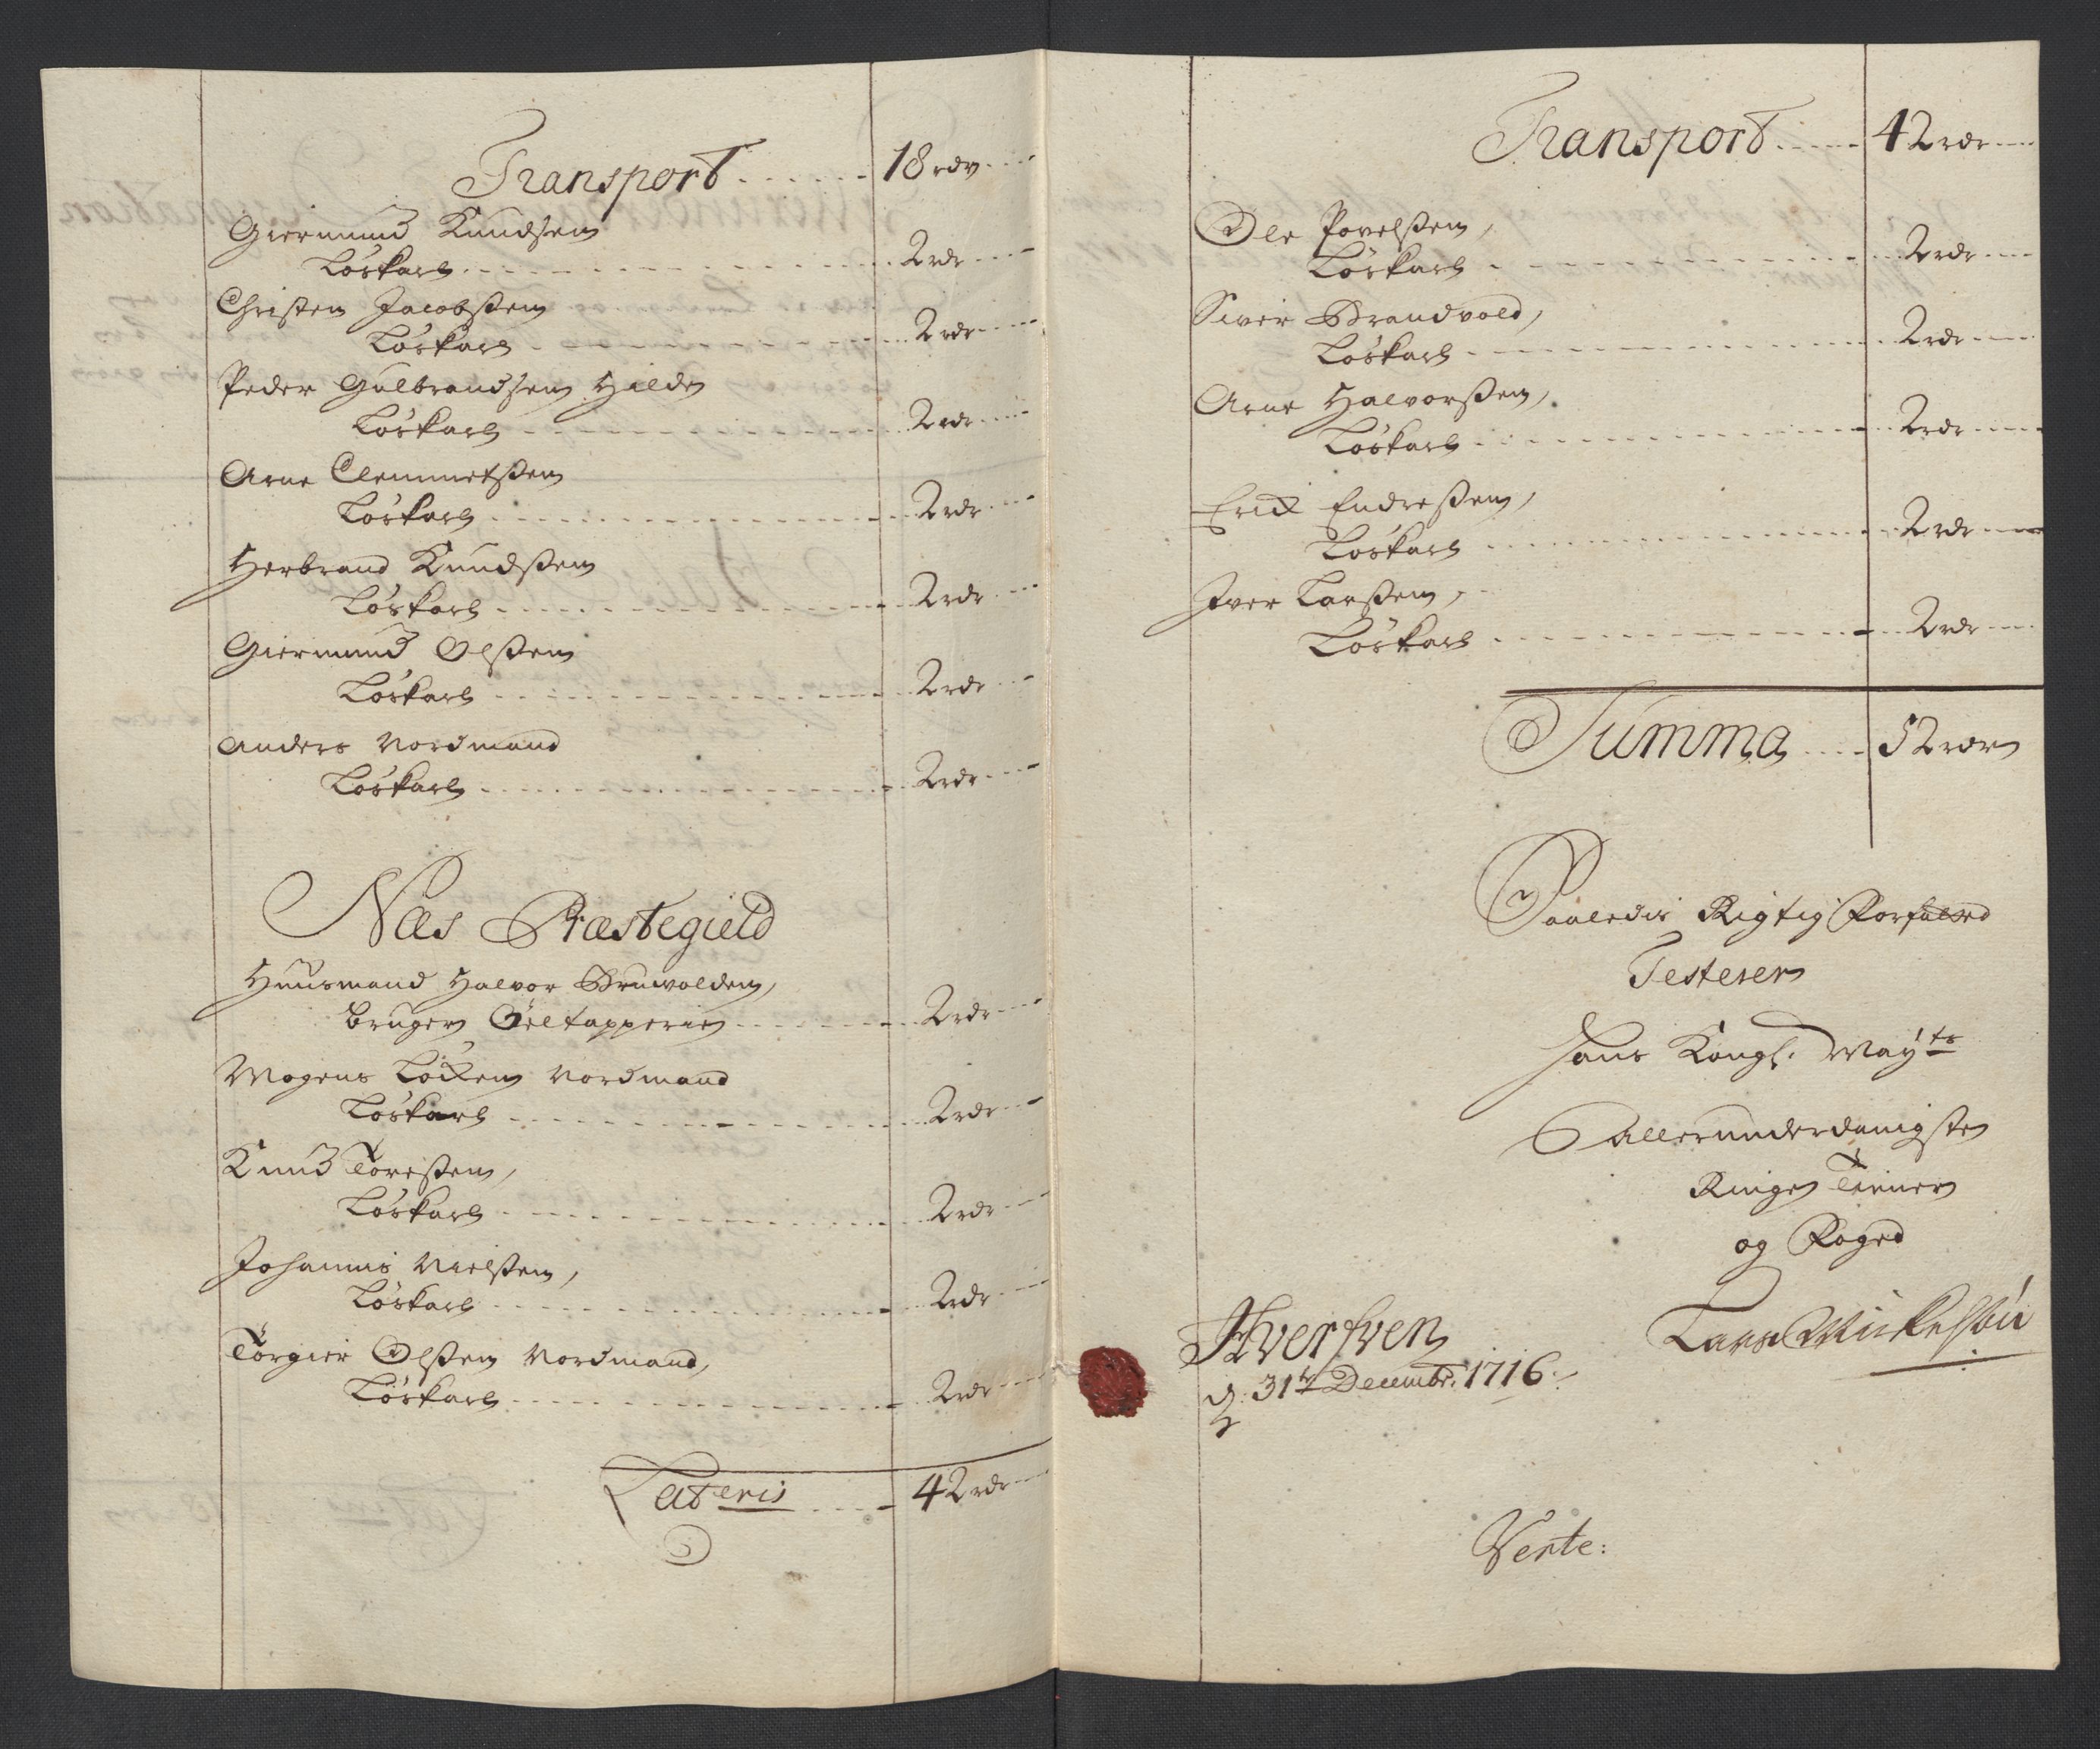 Transport 18 rdr
Giermund Knudsen
Löskarl 2 rdr
Christen Jacobsen
Löskarl 2 rdr
Peder Gulbrandsen Hilde
Löskarl 2 rdr
Arne Clemmetsen
Löskarl 2 rdr
Herbrand Knudsen
Löskarl 2 rdr
Giermund Olsen
Löskarl 2 rdr
Anders Nordmand
Löskarl 2 rdr
Næs Præstegield
Huusmand Halvor Bruvolden,
bruger Öeltapperie 2 rdr
Mogens Löcken Nordmand
Löskarl 2 rdr
Knud Toresen,
Löskarl 2 rdr
Johannis Nielsen,
Löskarl 2 rdr
Torgier Olsen Nordmand,
Löskarl 2 rdr
Lateris 42 rdr
Transport 42 rdr
Ole Povelsen,
Löskarl 2 rdr
Siver Brandvold,
Löskarl 2 rdr
Arne Halvorsen,
Löskarl 2 rdr
Erick Endresen,
Löskarl 2 rdr
Iver Larsen,
Löskarl 2 rdr
Summa 52 rdr
Saaledis Rigtig Forfatted
Testerer
Hans Kongl. May:ts
Allerunderdanigste
Ringe Tiener
og Foged
Lars Mickelsön
Hversven
d: 31te Decembr: 1716
Verte: